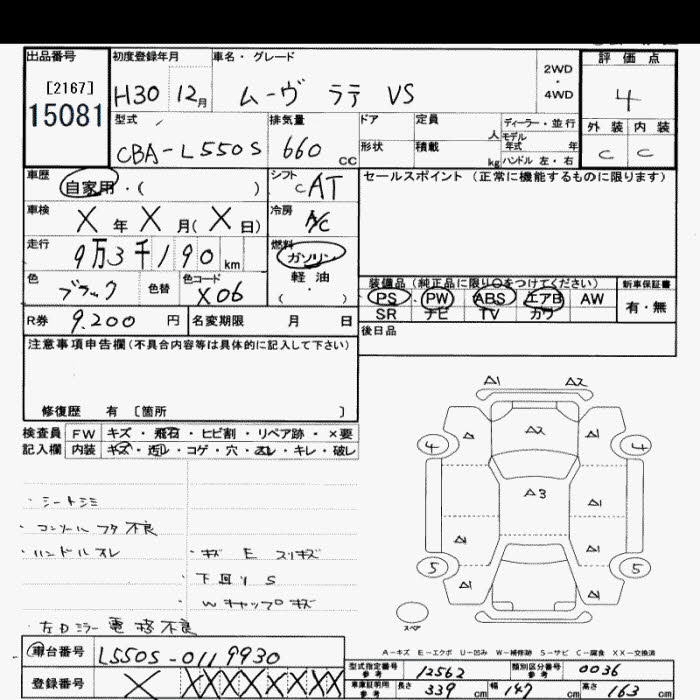 出品番号 初度登録年月 車名・グレード 評価点
[2167]
15081
H30 12月 ムーヴ ラテ VS
2WD
・
4WD
4
型式 排気量 ドア 定員 ディーラー・並行 外装 内装
人 モデル年式 年
CBA-L550S 660 cc
形状 積載 kg ハンドル 左・右 C C
車歴 シフト セールスポイント (正常に機能するものに限ります)
自家用・( ) CAT
車検 冷房
X年X月(X日) A/C
走行 燃料
9万3千190 km ガソリン・
軽油
( )
色 色替 色コード 装備品(純正品に限り○をつけてください) 新車保証書
ブラック X06 PS PW ABS エアB AW 有・無
SR ナビ TV カワ
R券 9.200 円 名変期限 月 日 後日品
注意事項申告欄(不具合内容等は具体的に記入して下さい)
修復歴 有 [箇所 ]
検査員 FW キズ・飛石・ヒビ割・リペア跡・×要
記入欄 内装 キズ・汚レ・コゲ・穴・スレ・キレ・破レ
A1 A2
4 A A2 A1 4
A3 A1
A1 A1
5 A1 A1 5
・シートシミ
・コンソールフタ不良
・ハンドルスレ ・キズ E スリキズ
・下回り S
・Wキャップキズ
・左Dミラー電格不良
スペア
A-キズ E-エクボ U-凹み W-補修跡 S-サビ C-腐食 XX-交換済
車台番号 L550S-0119930 型式指定番号 参考 12562 類別区分番号 参考 0036
登録番号 X XXXXXXX 車庫証明用 参考 長さ 339 cm 幅 147 cm 高さ 163 cm